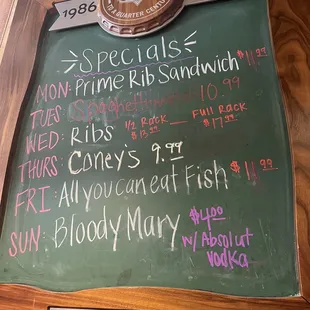 1986
A QUARTER CENTURY
Specials
MON: Prime Rib Sandwich $11.99
TUES Spaghetti 10.99
WED: Ribs 1/2 Rack $13.99 — Full Rack $17.99
THURS: Coney's 9.99
FRI: All you can eat Fish $14.99
SUN: Bloody Mary $4.00
w/ Absolut
vodka